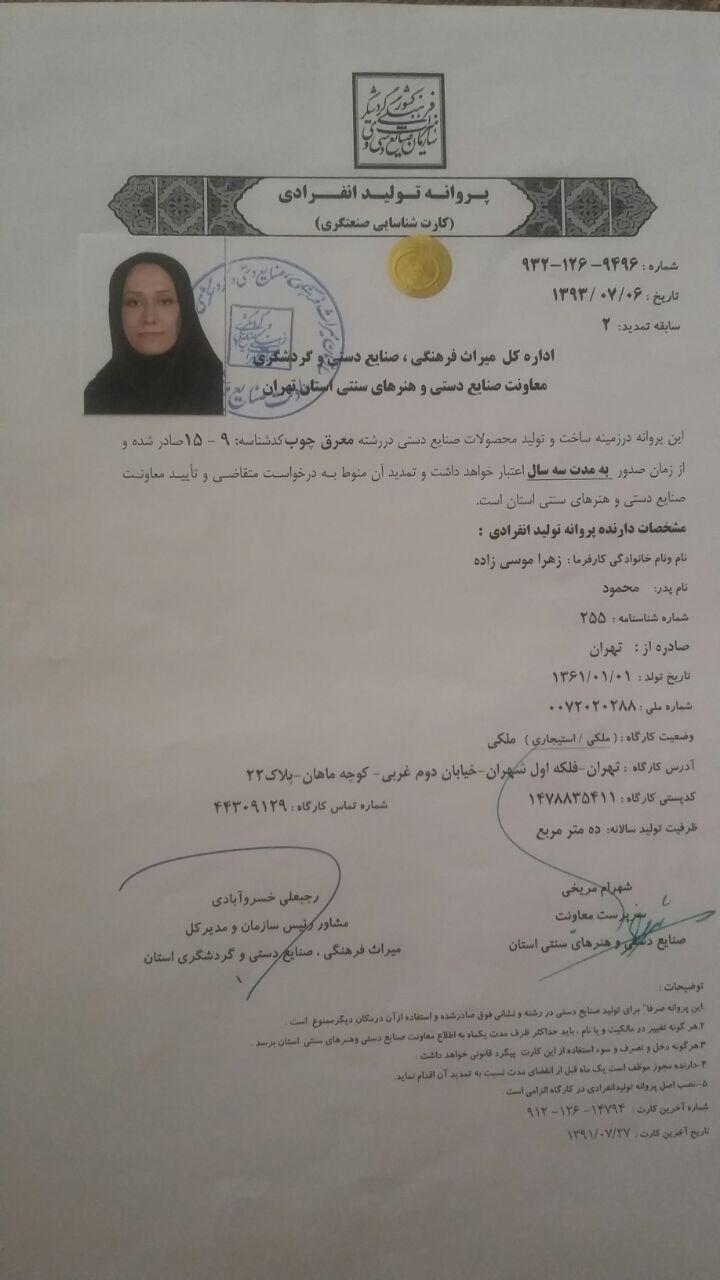 سازمان میراث فرهنگی صنایع دستی و گردشگری کشور
پروانه تولید انفرادی
(کارت شناسایی صنعتگری)
شماره : ۹۴۹۶- ۱۲۶- ۹۳۲
تاریخ : ۱۳۹۳/ ۰۷/ ۰۶
سابقه تمدید: ۲
اداره کل میراث فرهنگی ، صنایع دستی و گردشگری
معاونت صنایع دستی و هنرهای سنتی استان تهران
این پروانه درزمینه ساخت و تولید محصولات صنایع دستی دررشته معرق چوب کدشناسه: ۹ - ۱۵صادر شده و
از زمان صدور به مدت سه سال اعتبار خواهد داشت و تمدید آن منوط به درخواست متقاضی و تأیید معاونت
صنایع دستی و هنرهای سنتی استان است.
مشخصات دارنده پروانه تولید انفرادی :
نام ونام خانوادگی کارفرما : زهرا موسی زاده
نام پدر: محمود
شماره شناسنامه : ۲۵۵
صادره از : تهران
تاریخ تولد : ۱۳۶۱/۰۱/۰۱
شماره ملی : ۰۰۷۲۰۲۰۲۸۸
وضعیت کارگاه : ( ملکی / استیجاری ) ملکی
آدرس کارگاه : تهران-فلکه اول شهران-خیابان دوم غربی- کوچه ماهان-پلاک۲۲
کدپستی کارگاه : ۱۴۷۸۸۳۵۴۱۱ شماره تماس کارگاه : ۴۴۳۰۹۱۲۹
ظرفیت تولید سالانه: ده متر مربع
شهرام مریخی
سرپرست معاونت
صنایع دستی و هنرهای سنتی استان
رجبعلی خسروآبادی
مشاور رئیس سازمان و مدیرکل
میراث فرهنگی ، صنایع دستی و گردشگری استان
توضیحات :
۱.این پروانه صرفا" برای تولید صنایع دستی در رشته و نشانی فوق صادرشده و استفاده ازآن درمکان دیگرممنوع است .
۲.هر گونه تغییر در مالکیت و یا نام ، باید حداکثر ظرف مدت یکماه به اطلاع معاونت صنایع دستی وهنرهای سنتی استان برسد .
۳.هرگونه دخل و تصرف و سوء استفاده از این کارت پیگرد قانونی خواهد داشت .
۴-دارنده مجوز موظف است یک ماه قبل از انقضای مدت نسبت به تمدید آن اقدام نماید.
۵-نصب اصل پروانه تولیدانفرادی در کارگاه الزامی است .
شماره آخرین کارت : ۱۴۷۹۴- ۱۲۶- ۹۱۲
تاریخ آخرین کارت : ۱۳۹۱/۰۷/۲۷